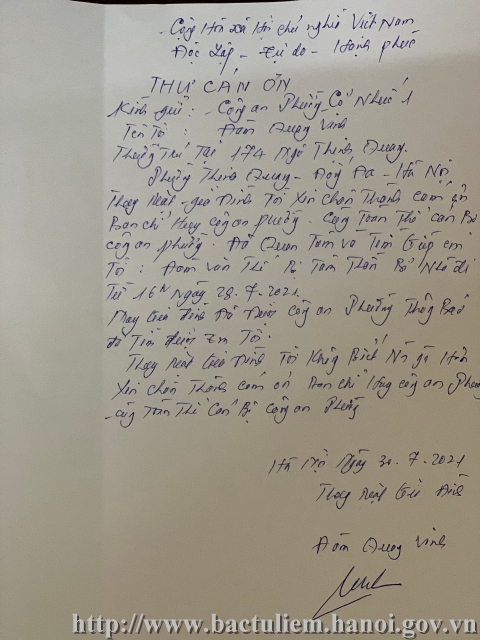 Cộng Hòa Xã Hội chủ nghĩa Việt Nam
Độc Lập - Tự do - Hạnh phúc
THƯ CẢM ƠN
Kính gửi : Công an Phường Cổ Nhuế 1
Tên Tôi : Đàm Quang Vinh
Thường Trú Tại 174 Ngõ Thịnh Quang.
Phường Thịnh Quang - Đống Đa - Hà Nội
Thay Mặt gia Đình Tôi Xin chân Thành cảm ơn
Ban chỉ Huy công an phường. Cùng Toàn Thể cán Bộ
công an phường. Đã Quan Tâm và Tìm Giúp em
Tôi : Đàm Văn Thế Bị Tâm Thần Bỏ Nhà đi
Từ 16h Ngày 28.7.2021.
May Gia đình Đã Được công an Phường Thông Báo
đã Tìm được Em Tôi.
Thay Mặt Gia Đình Tôi Không Biết Nói gì Hơn
Xin chân Thành cảm ơn Ban chỉ Huy công an Phường
cùng Toàn Thể Cán Bộ công an Phường
Hà Nội Ngày 30.7.2021
Thay Mặt Gia Đình
Đàm Quang Vinh
http://www.bactuliem.hanoi.gov.vn